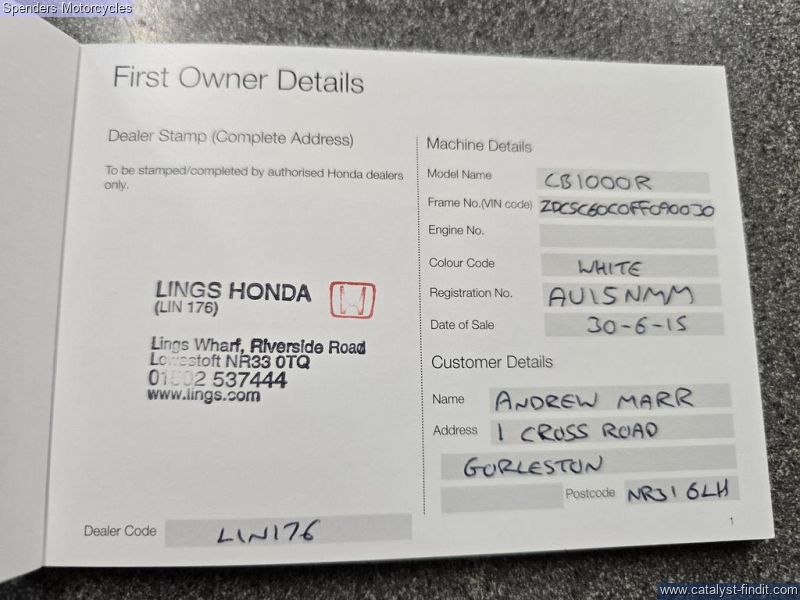 Spenders Motorcycles
First Owner Details
Dealer Stamp (Complete Address)
To be stamped/completed by authorised Honda dealers
only.
LINGS HONDA
(LIN 176)
Lings Wharf, Riverside Road
Lowestoft NR33 0TQ
01502 537444
www.lings.com
Dealer Code LIN176
Machine Details
Model Name CB1000R
Frame No.(VIN code) ZDCSC60C0FF090030
Engine No.
Colour Code WHITE
Registration No. AU15NMM
Date of Sale 30-6-15
Customer Details
Name ANDREW MARR
Address 1 CROSS ROAD
GORLESTON
Postcode NR31 6LH
1
www.catalyst-findit.com